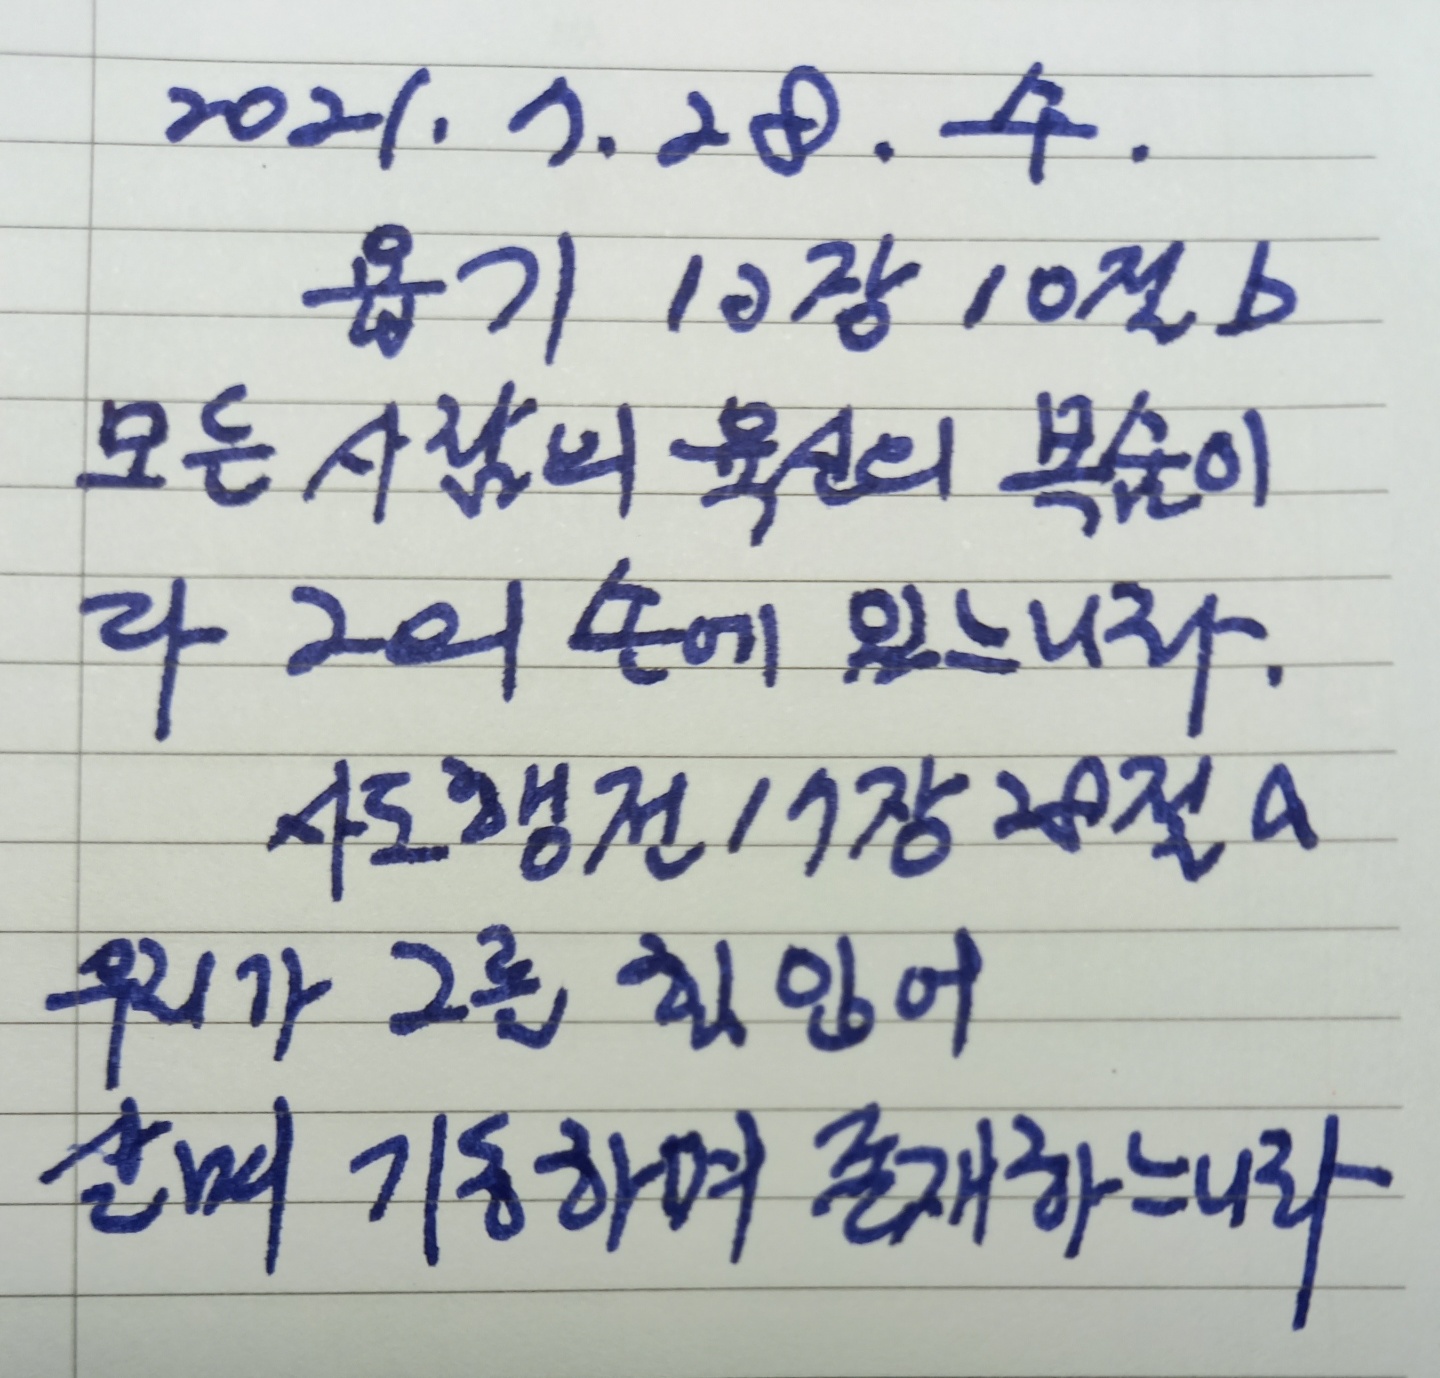 2021. 7. 28. 수.
욥기 12장 10절 b
모든 사람의 육신의 목숨이
다 그의 손에 있느니라.
사도행전 17장 28절 a
우리가 그를 힘입어
살며 기동하며 존재하느니라